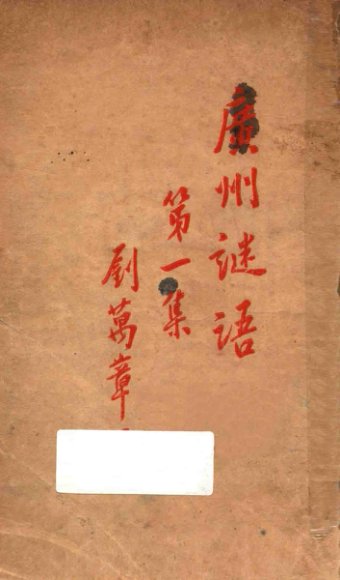 廣州謎语
第一集
劉萬章